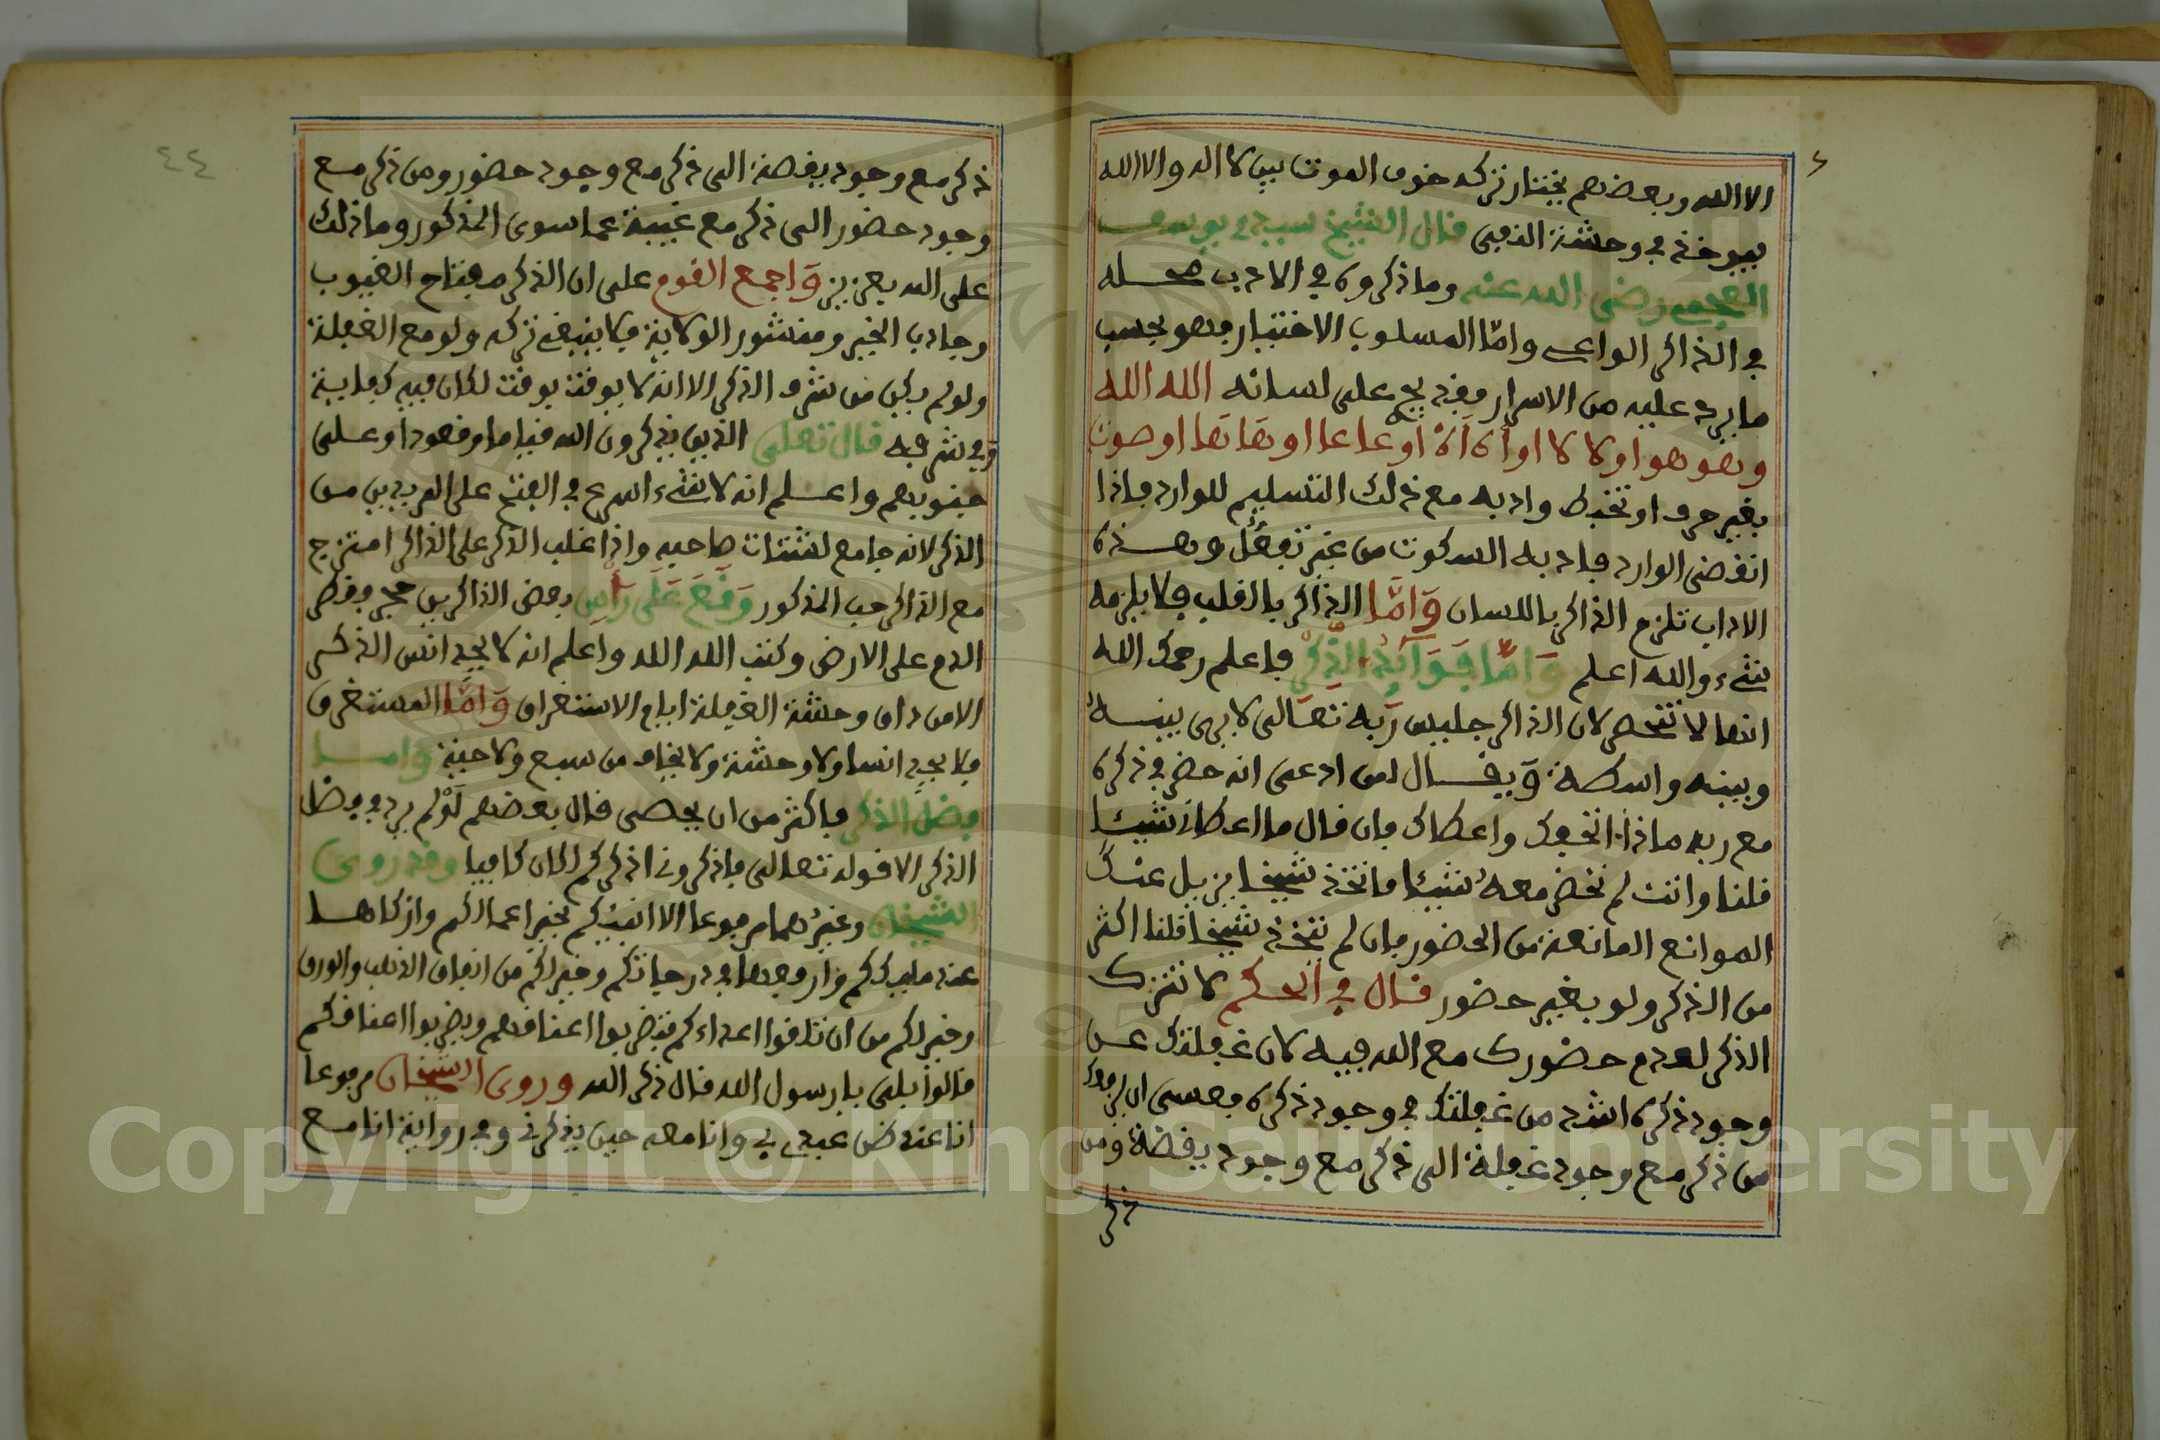 الا الله وبعضهم يختار تركه خوف الموت بين لا اله والا الله
فيوخذ في وحشة النفي قال الشيخ سيدي يوسف
العجمي رضي الله عنه وما ذكروه في الاداب محله
في الذاكر الواعي واما المسلوب الاختيار فهو بحسب
ما يرد عليه من الاسرار فقد يجري على لسانه الله الله
وهو هو او لا لا او أه أه او عا عا او ها ها او صوت
بغير حرف او تخبط وادبه مع ذلك التسليم للوارد فاذا
انقضى الوارد فادبه السكوت من غير تفعل وهذه
الاداب تلزم الذاكر باللسان وَاَمَّا الذاكر بالقلب فلا يلزمه
شيء والله اعلم وَاَمَّا فَوَائِدُ الذِّكْرِ فاعلم رحمك الله
انها لا تنحصر لان الذاكر جليس ربه تعالى لا يرى بينه
وبينه واسطة وَيقال لمن ادعى انه حضر في ذكره
مع ربه ماذا اتحفك واعطاك فان قال ما اعطاني شيئا
قلنا وانت لم تحضر معه شيئا فاتخذ شيخا يزيل عنك
الموانع المانعة من الحضور فان لم تتخذ شيخا قلنا اكثر
من الذكر ولو بغير حضور قال في الحكم لا تترك
الذكر لعدم حضورك مع الله فيه لان غفلتك عن
وجود ذكره اشد من غفلتك في وجود ذكره فعسى ان يرفعك
من ذكر مع وجود غفلة الى ذكر مع وجود يقظة ومن
ذكر
٤٤
ذكر مع وجود يقظة الى ذكر مع وجود حضور ومن ذكر مع
وجود حضور الى ذكر مع غيبة عما سوى المذكور وما ذلك
على الله بعزيز وَاجمع القوم على ان الذكر مفتاح الغيوب
وجاذب الخير ومنشور الولاية فلا ينبغي تركه ولو مع الغفلة
ولو لم يكن من شرف الذكر الا انه لا يوقت بوقت لكان فيه كفاية
في شرفه قال تعلى الذين يذكرون الله قياما وقعودا وعلى
جنوبهم واعلم انه لا شيء اسرع في الفتح على المريدين من
الذكر لانه جامع لشتات صاحبه واذا غلب الذكر على الذاكر امتزج
مع الذاكر حب المذكور وَقَعَ عَلَى رَأْسِ بعض الذاكرين حجر فقطر
الدم على الارض وكتب الله الله واعلم انه لا يجد انس الذكر
الا من ذاق وحشة الغفلة ايام الاستغراق وَاَمَّا المستغرق
فلا يجد انسا ولا وحشة ولا يخاف من سبع ولا حية وَاما
فضل الذكر فاكثر من ان يحصى قال بعضهم لَوْ لم يرد في فضل
الذكر الا قوله تعالى فاذكروني اذكركم لكان كافيا وقد روى
الشيخان وغيرهما مرفوعا الا انبئكم بخير اعمالكم وازكاها
عند مليككم وارفعها في درجاتكم وخير لكم من انفاق الذهب والورق
وخير لكم من ان تلقوا اعداءكم فتضربوا اعناقهم ويضربوا اعناقكم
قالوا بلى يا رسول الله قال ذكر الله وروى الشيخان مرفوعا
انا عند ظن عبدي بي وانا معه حين يذكرني وفي رواية انا مع
Copyright © King Saud University